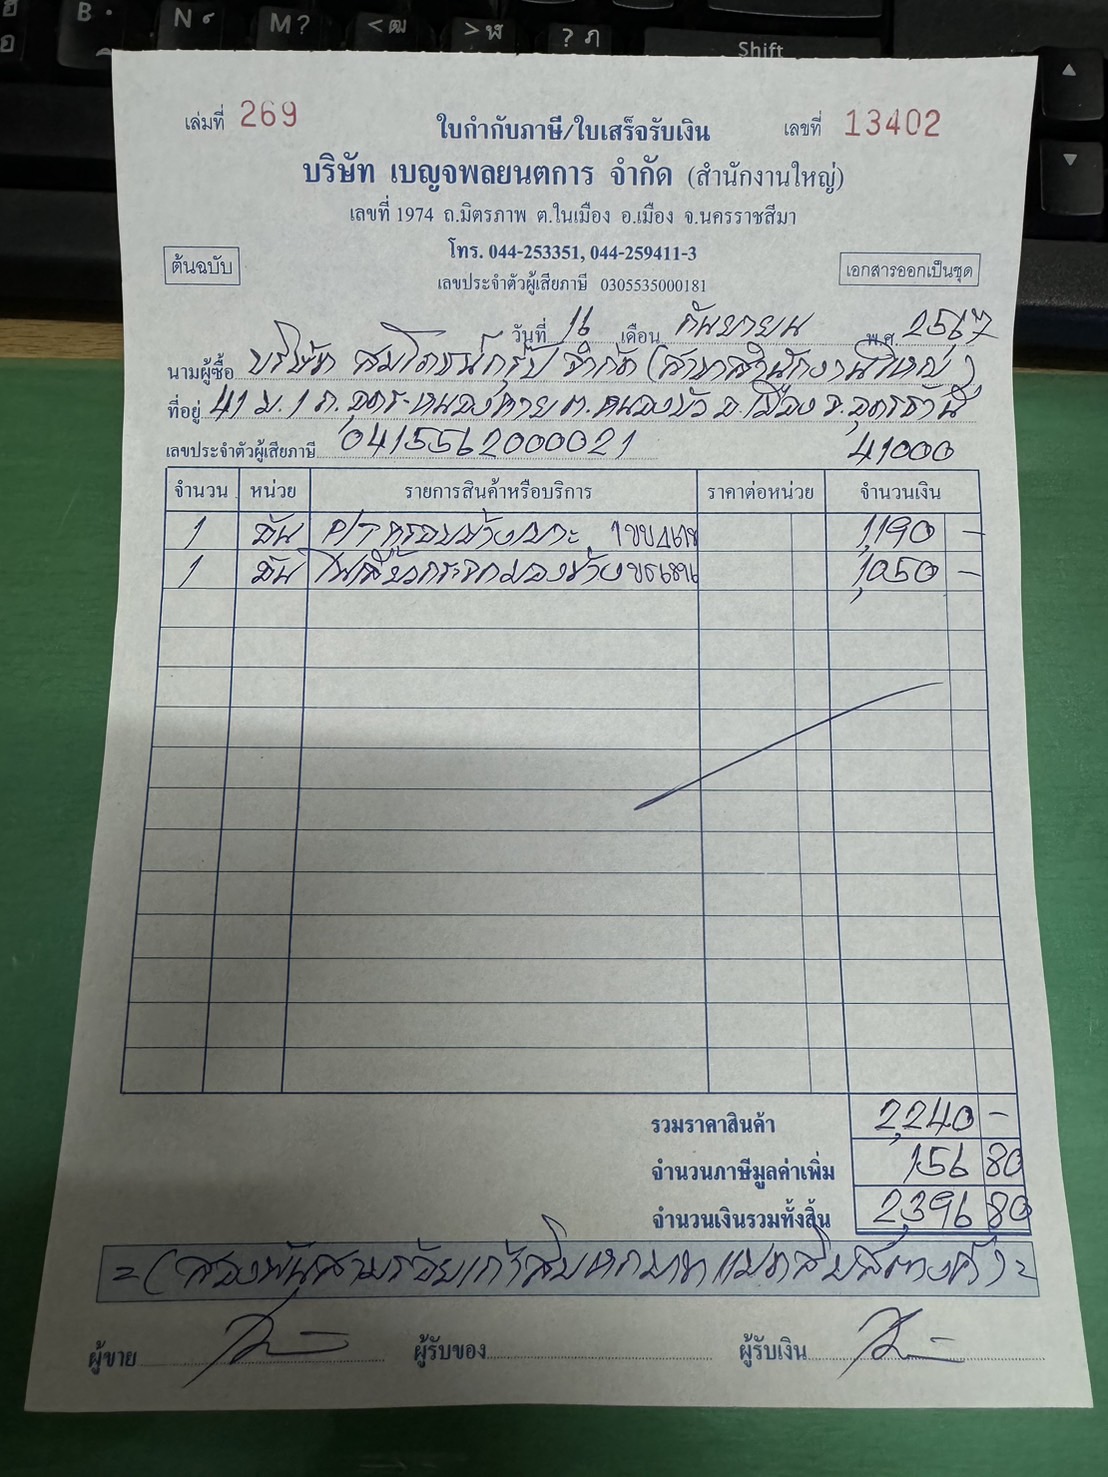 B N M ? < ฒ > ฬ ? ฦ Shift
เล่มที่ 269 ใบกำกับภาษี/ใบเสร็จรับเงิน เลขที่ 13402
บริษัท เบญจพลยนตการ จำกัด (สำนักงานใหญ่)
เลขที่ 1974 ถ.มิตรภาพ ต.ในเมือง อ.เมือง จ.นครราชสีมา
โทร. 044-253351, 044-259411-3
ต้นฉบับ เลขประจำตัวผู้เสียภาษี 0305535000181 เอกสารออกเป็นชุด
วันที่ 16 เดือน กันยายน พ.ศ. 2567
นามผู้ซื้อ บริษัท สมโภชน์กรุ๊ป จำกัด (สาขาสำนักงานใหญ่)
ที่อยู่ 41 ม.1 ถ.อุดร-หนองคาย ต.หนองบัว อ.เมือง จ.อุดรธานี
เลขประจำตัวผู้เสียภาษี 0415562000021 41000
จำนวน หน่วย รายการสินค้าหรือบริการ ราคาต่อหน่วย จำนวนเงิน
1 อัน 1,190 -
1 อัน ไฟเลี้ยวกระจกมองข้าง 1,050 -
รวมราคาสินค้า 2,240 -
จำนวนภาษีมูลค่าเพิ่ม 156 80
จำนวนเงินรวมทั้งสิ้น 2,396 80
= (สองพันสามร้อยเก้าสิบหกบาทแปดสิบสตางค์) =
ผู้ขาย ผู้รับของ ผู้รับเงิน